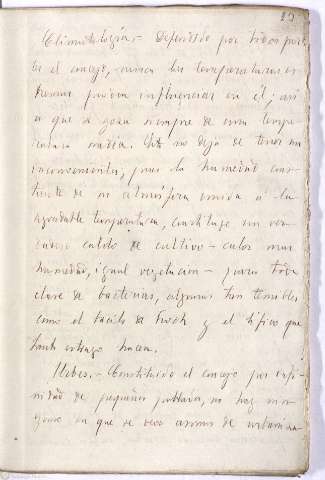 Climatología.- Defendido por todas par-
tes el concejo, nunca las temperaturas ex-
tremas pueden influenciar en él; así
es que se goza siempre de una tempe-
ratura media. Esto no deja de tener sus
inconvenientes, pues la humedad cons-
tante de su atmósfera unida a la
agradable temperatura, constituye un ver-
dadero caldo de cultivo - calor más
humedad, igual vegetación - para toda
clase de bacterias, algunas tan temibles
como el bacilo de Koch y el tífico que
tanto estrago hacen.
Urbes.- Constituido el concejo por infi-
nidad de pequeños poblados, no hay nin-
guno en que se vea asomo de urbaniza